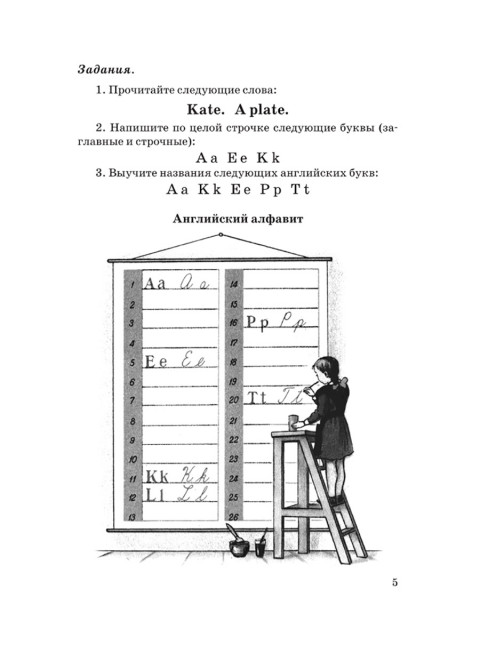 Задания.
1. Прочитайте следующие слова:
Kate. A plate.
2. Напишите по целой строчке следующие буквы (за-
главные и строчные):
A a E e K k
3. Выучите названия следующих английских букв:
A a K k E e P p T t
Английский алфавит
1 Aa Aa
2
3
4
5 Ee Ee
6
7
8
9
10
11 Kk Kk
12 Ll Ll
13
14
15
16 Pp Pp
17
18
19
20 Tt Tt
21
22
23
24
25
26
5